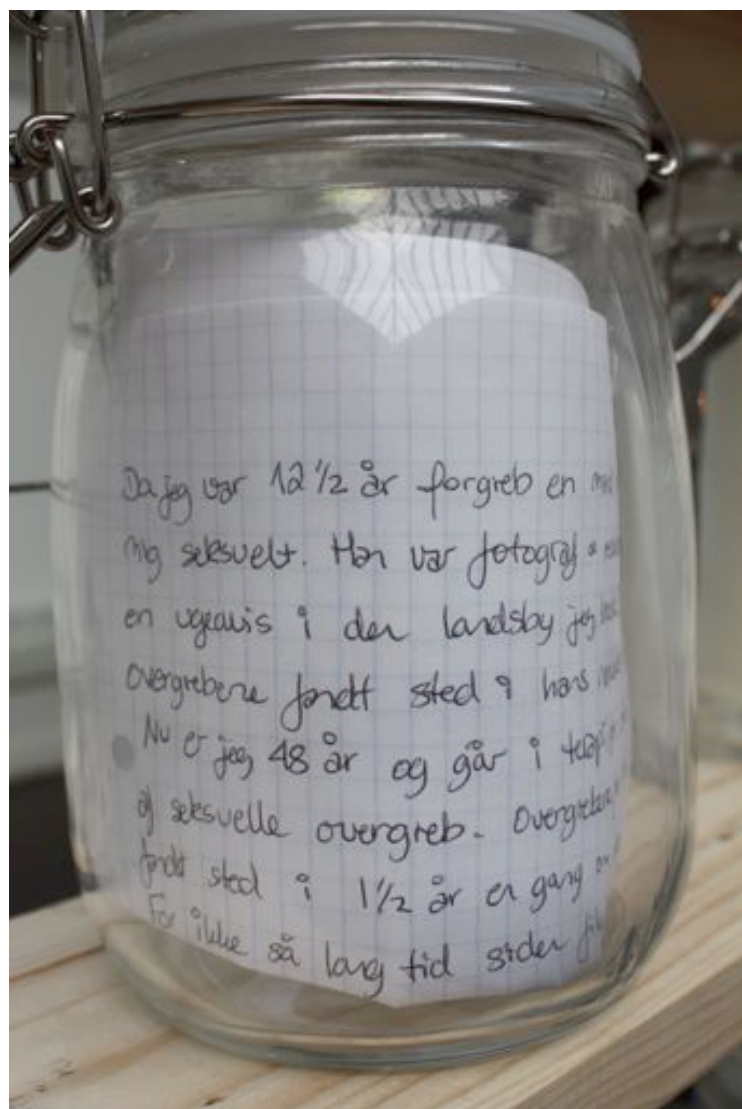 Da jeg var 12 1/2 år forgreb en
mig seksuelt. Han var fotograf
en ugeavis i den landsby jeg
overgrebene fandt sted i hans
Nu er jeg 48 år og går i
af seksuelle overgreb. Overgrebene
fandt sted i 1 1/2 år en gang
For ikke så lang tid siden